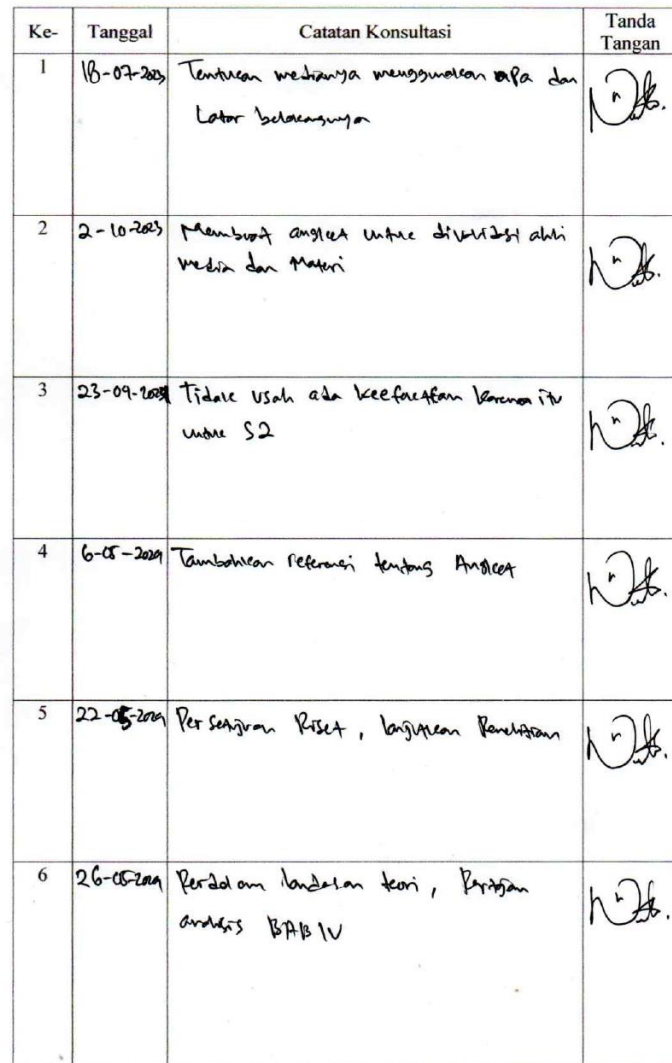 Ke- Tanggal Catatan Konsultasi Tanda Tangan
1 18-07-2023 Tentukan medianya menggunakan apa dan
Latar belakangnya
2 2-10-2023 Membuat angket untuk divalidasi ahli
media dan Materi
3 23-09-2024 Tidak usah ada keefektifan karena itu
untuk S2
4 6-05-2024 Tambahkan referensi tentang Angket
5 22-05-2024 Persetujuan Riset, lanjutkan Penelitian
6 26-05-2024 Perdalam landasan teori,
analisis BAB IV